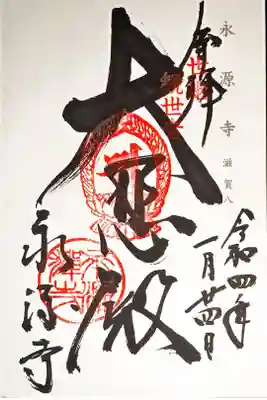 永源寺 滋賀八
奉拝
令和四年
一月廿四日
大悲殿
永源寺